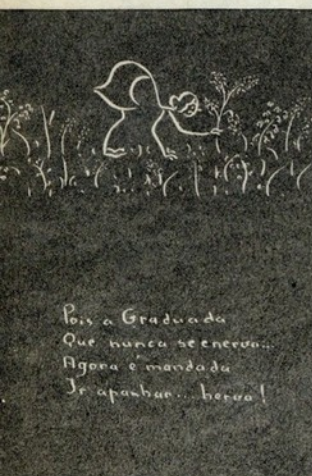 Pois a Graduada
Que nunca se enerva...
Agora é mandada
Ir apanhar... herva!